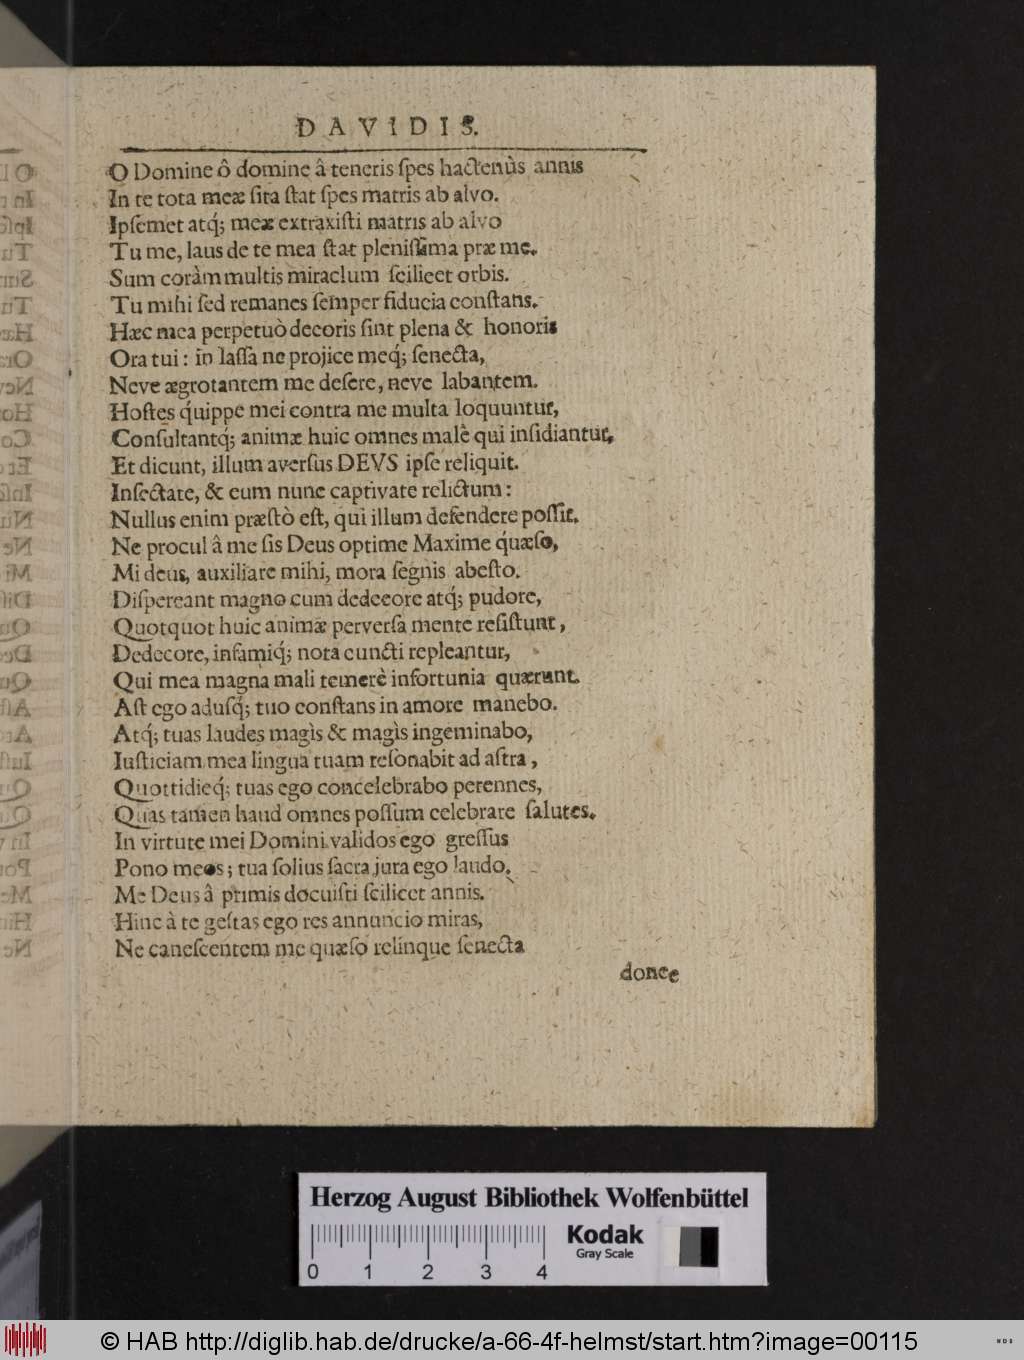 DAVIDIS.
O Domine ô domine â teneris ſpes hactenùs annis
In te tota meæ ſita ſtat ſpes matris ab alvo.
Ipſemet atq́; meæ extraxiſti matris ab alvo
Tu me, laus de te mea ſtat pleniſſima præ me.
Sum coràm multis miraclum ſcilicet orbis.
Tu mihi ſed remanes ſemper fiducia conſtans.
Hæc mea perpetuò decoris ſint plena & honoris
Ora tui: in laſſa ne projice meq́; ſenecta,
Neve ægrotantem me deſere, neve labantem.
Hoſtes q́uippe mei contra me multa loquuntur,
Conſultantq́; animæ huic omnes malè qui inſidiantur,
Et dicunt, illum averſus DEVS ipſe reliquit.
Inſectate, & eum nunc captivate relictum:
Nullus enim præſtò eſt, qui illum defendere poſſit.
Ne procul â me ſis Deus optime Maxime q́uæſo,
Mi deus, auxiliare mihi, mora ſegnis abeſto.
Diſpereant magno cum dedecore atq́; pudore,
Quotquot huic animæ perverſa mente reſiſtunt,
Dedecore, infamiq́; nota cuncti repleantur,
Qui mea magna mali temerè infortunia quærunt.
Aſt ego aduſq́; tuo conſtans in amore manebo.
Atq́; tuas laudes magìs & magìs ingeminabo,
Iuſticiam mea lingua tuam reſonabit ad aſtra,
Quottidieq́; tuas ego concelebrabo perennes,
Quas tamen haud omnes poſſum celebrare ſalutes.
In virtute mei Domini validos ego greſſus
Pono meos; tua ſolius ſacra jura ego laudo.
Me Deus â primis docuiſti ſcilicet annis.
Hinc à te geſtas ego res annuncio miras,
Ne caneſcentem me quæſo relinque ſenecta
donec
Herzog August Bibliothek Wolfenbüttel
Kodak
Gray Scale
0 1 2 3 4
© HAB http://diglib.hab.de/drucke/a-66-4f-helmst/start.htm?image=00115